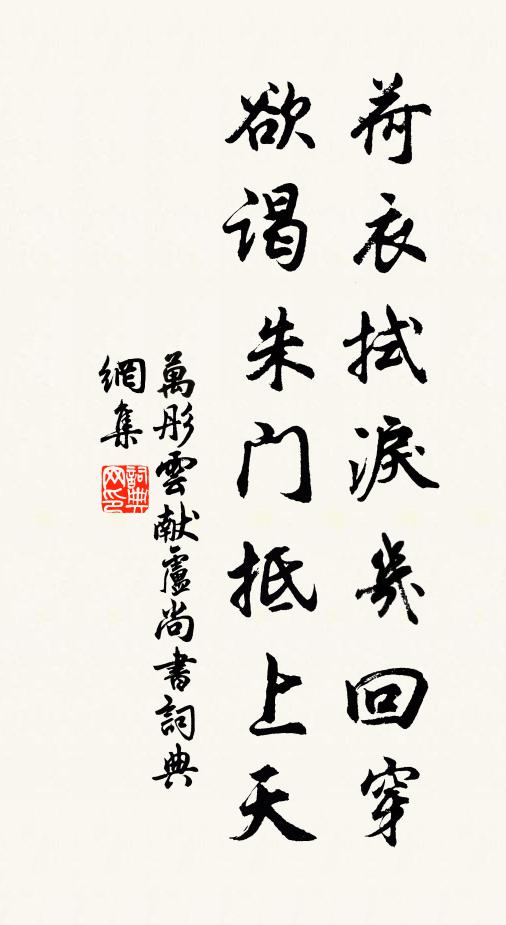 荷衣拭淚幾回穿
欲谒朱门抵上天
萬彤雲献盧尚書詞典
網集
詞典網印